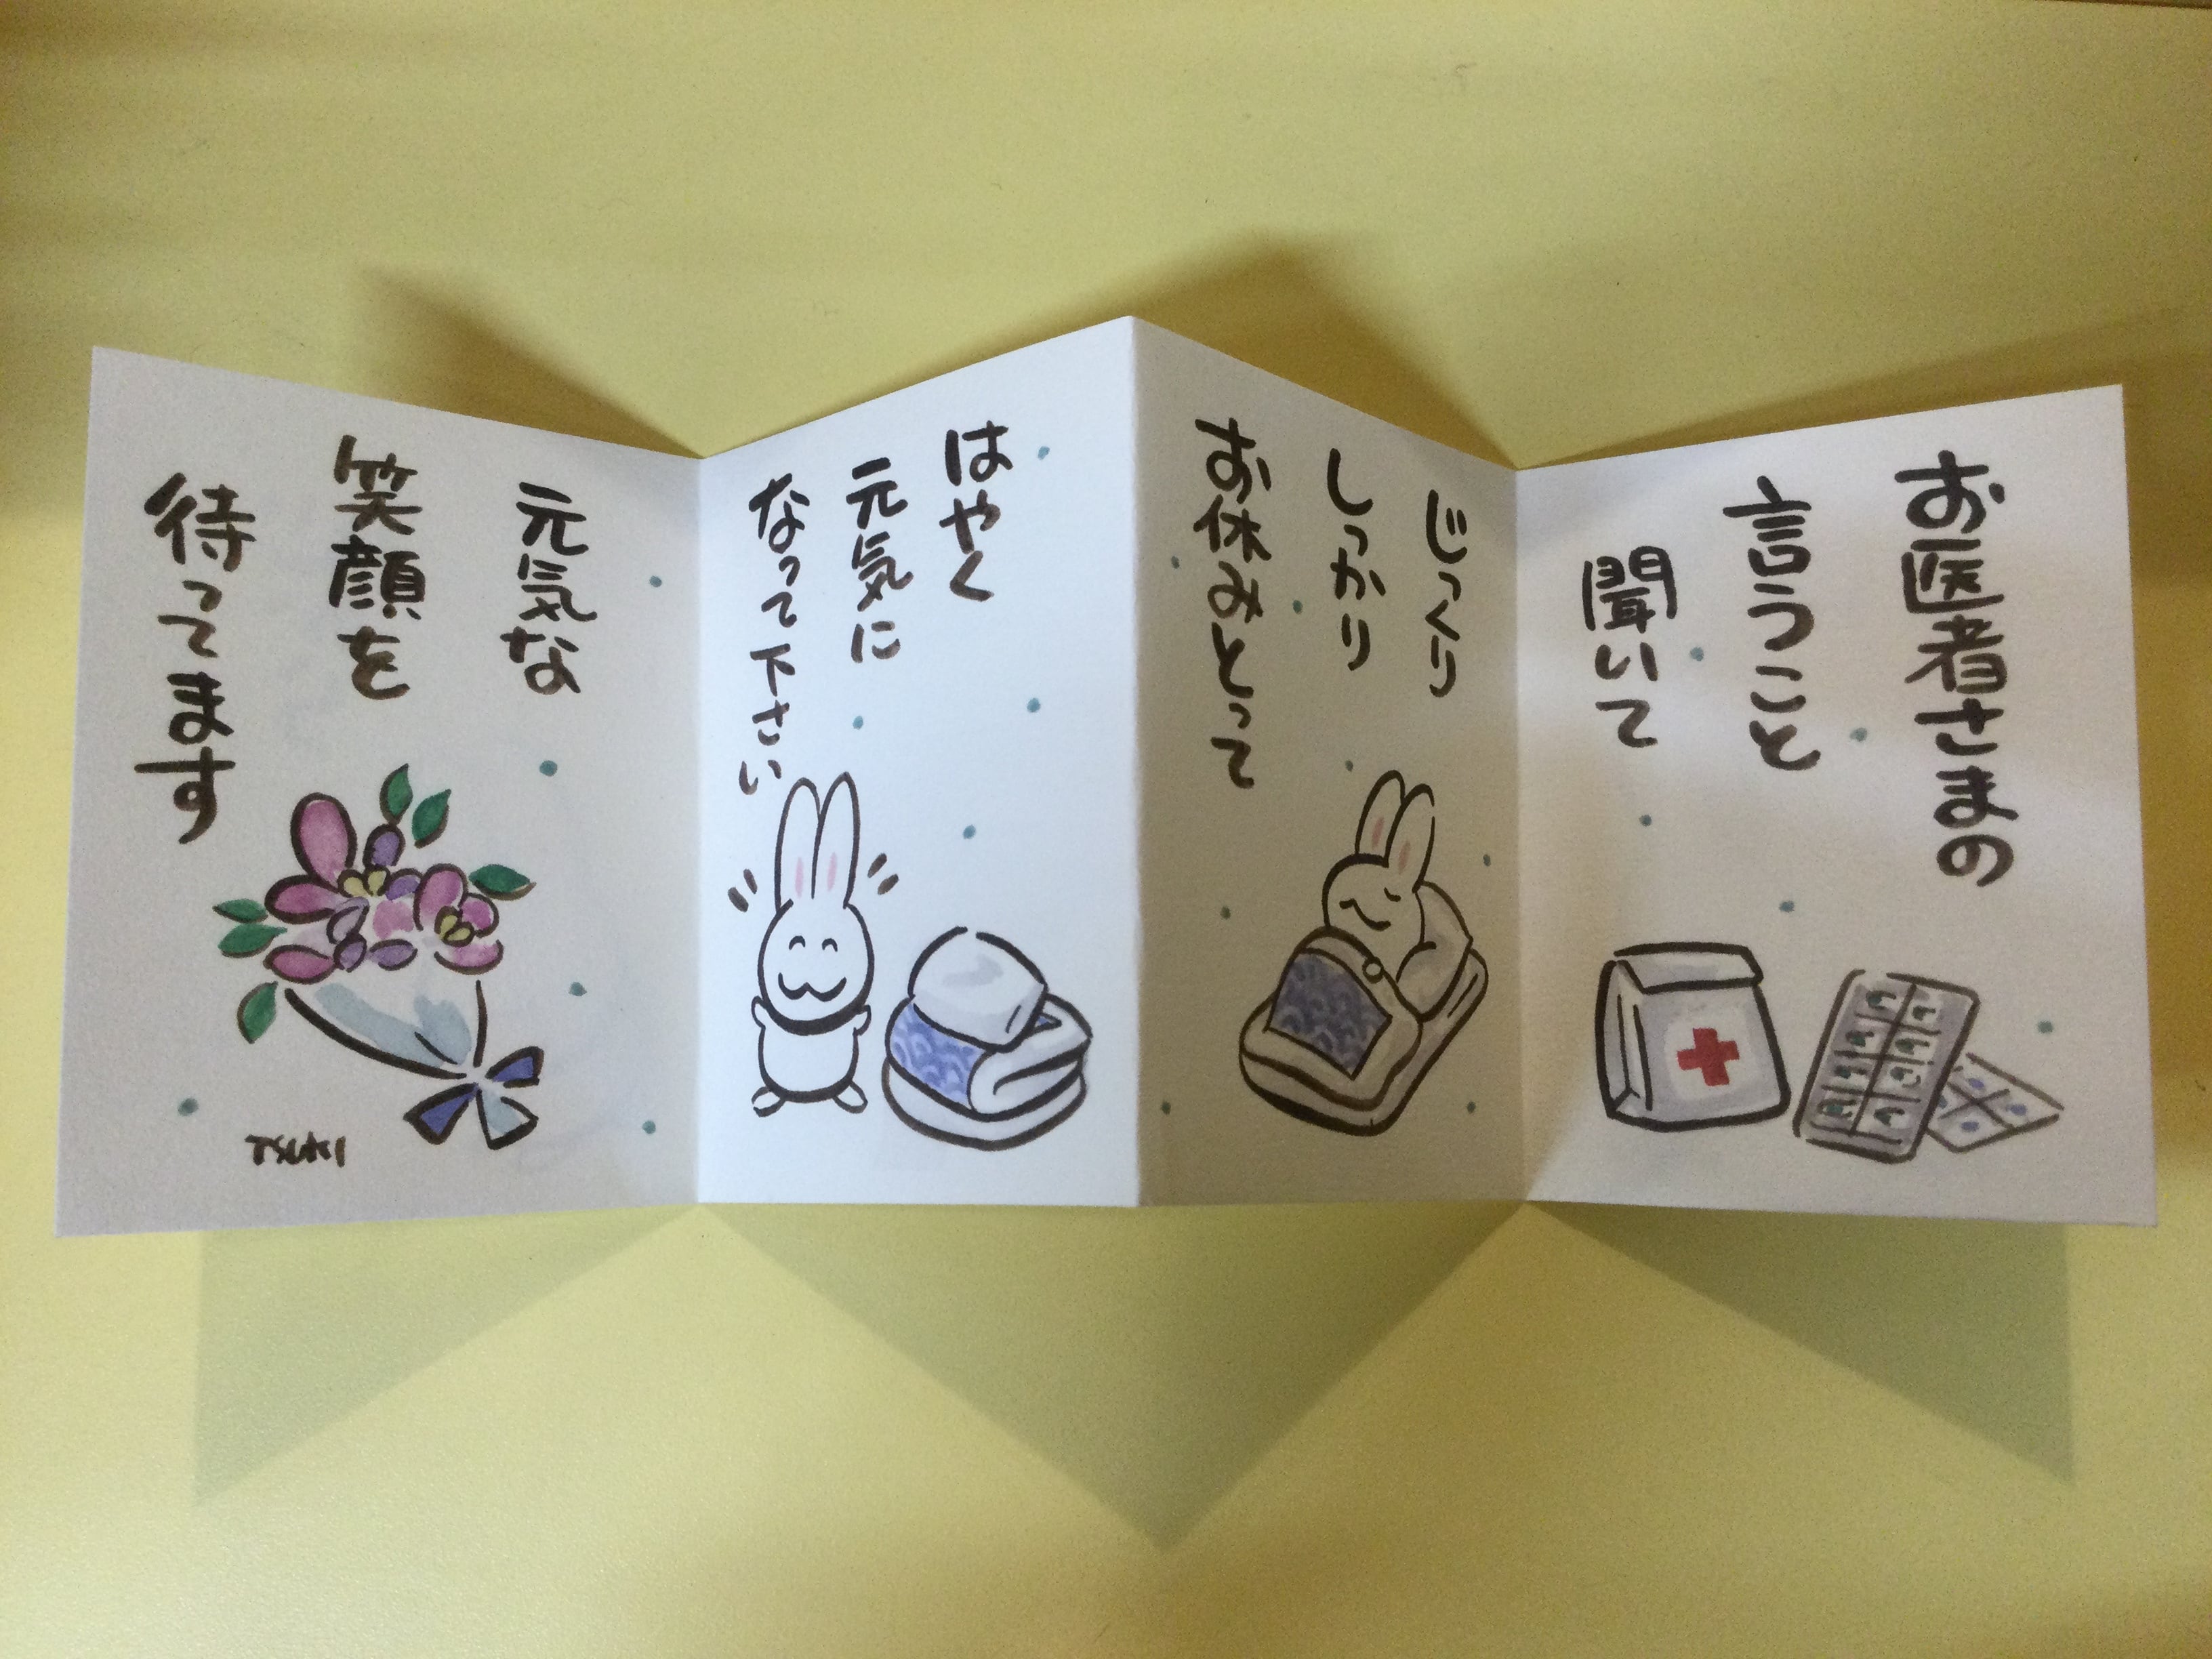 お医者さまの
言うこと
聞いて
じっくり
しっかり
お休みとって
はやく
元気に
なって下さい
元気な
笑顔を
待ってます
TSUKI